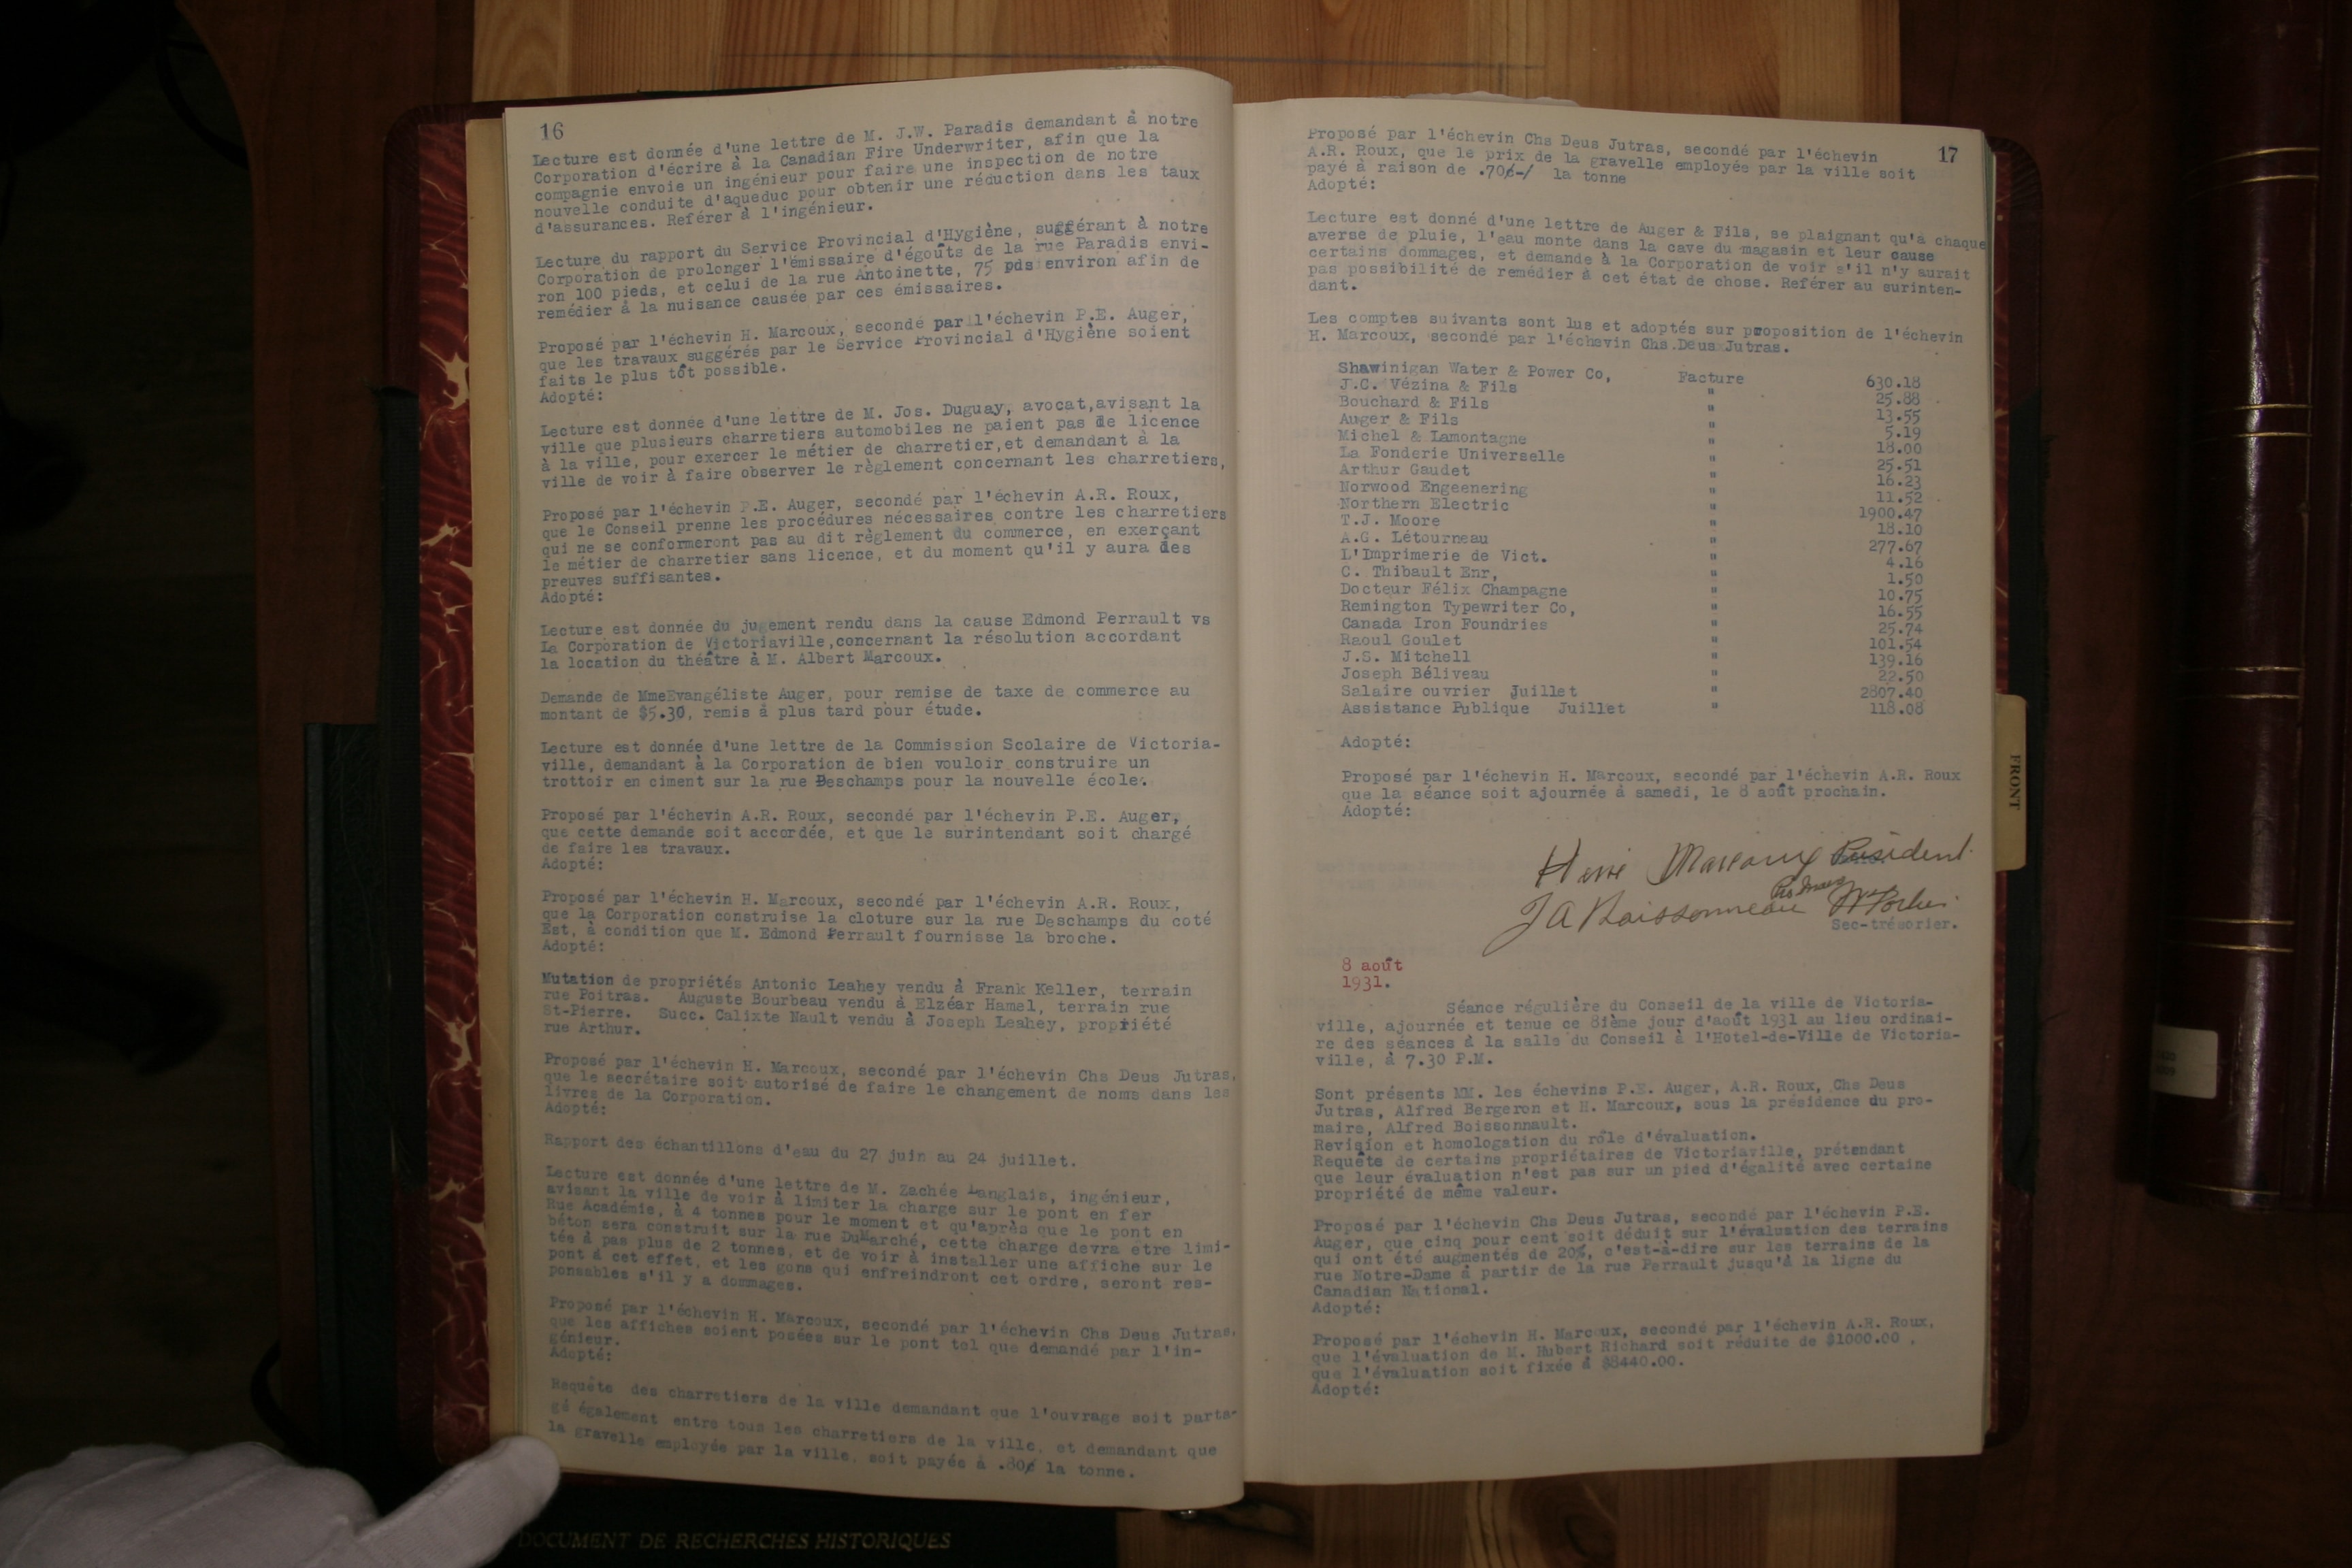 16
Lecture est donnée d'une lettre de M. J.W. Paradis demandant à notre
Corporation d'écrire à la Canadian Fire Underwriter, afin que la
compagnie envoie un ingénieur pour faire une inspection de notre
nouvelle conduite d'aqueduc pour obtenir une réduction dans les taux
d'assurances. Reférer à l'ingénieur.
Lecture du rapport du Service Provincial d'Hygiène, suggérant à notre
Corporation de prolonger l'émissaire d'égoûts de la rue Paradis envi-
ron 100 pieds, et celui de la rue Antoinette, 75 pds environ afin de
remédier à la nuisance causée par ces émissaires.
Proposé par l'échevin H. Marcoux, secondé par l'échevin P.E. Auger,
que les travaux suggérés par le Service Provincial d'Hygiène soient
faits le plus tôt possible.
Adopté:
Lecture est donnée d'une lettre de M. Jos. Duguay, avocat,avisant la
ville que plusieurs charretiers automobiles ne paient pas de licence
à la ville, pour exercer le métier de charretier,et demandant à la
ville de voir à faire observer le règlement concernant les charretiers,
Proposé par l'échevin P.E. Auger, secondé par l'échevin A.R. Roux,
que le Conseil prenne les procédures nécessaires contre les charretiers
qui ne se conformeront pas au dit règlement du commerce, en exerçant
le métier de charretier sans licence, et du moment qu'il y aura des
preuves suffisantes.
Adopté:
Lecture est donnée du jugement rendu dans la cause Edmond Perrault vs
La Corporation de Victoriaville,concernant la résolution accordant
la location du théâtre à M. Albert Marcoux.
Demande de MmeEvangéliste Auger, pour remise de taxe de commerce au
montant de $5.30, remis à plus tard pour étude.
Lecture est donnée d'une lettre de la Commission Scolaire de Victoria-
ville, demandant à la Corporation de bien vouloir construire un
trottoir en ciment sur la rue Deschamps pour la nouvelle école.
Proposé par l'échevin A.R. Roux, secondé par l'échevin P.E. Auger,
que cette demande soit accordée, et que le surintendant soit chargé
de faire les travaux.
Adopté:
Proposé par l'échevin H. Marcoux, secondé par l'échevin A.R. Roux,
que la Corporation construise la cloture sur la rue Deschamps du coté
Est, à condition que M. Edmond Perrault fournisse la broche.
Adopté:
Mutation de propriétés Antonio Leahey vendu à Frank Keller, terrain
rue Poitras. Auguste Bourbeau vendu à Elzéar Hamel, terrain rue
St-Pierre. Succ. Calixte Nault vendu à Joseph Leahey, propriété
rue Arthur.
Proposé par l'échevin H. Marcoux, secondé par l'échevin Chs Deus Jutras,
que le secrétaire soit autorisé de faire le changement de noms dans les
livres de la Corporation.
Adopté:
Rapport des échantillons d'eau du 27 juin au 24 juillet.
Lecture est donnée d'une lettre de M. Zachée Langlais, ingénieur,
avisant la ville de voir à limiter la charge sur le pont en fer
Rue Académie, à 4 tonnes pour le moment et qu'après que le pont en
béton sera construit sur la rue DuMarché, cette charge devra etre limi-
tée à pas plus de 2 tonnes, et de voir à installer une affiche sur le
pont à cet effet, et les gens qui enfreindront cet ordre, seront res-
ponsables s'il y a dommages.
Proposé par l'échevin H. Marcoux, secondé par l'échevin Chs Deus Jutras,
que les affiches soient posées sur le pont tel que demandé par l'in-
génieur.
Adopté:
Requête des charretiers de la ville demandant que l'ouvrage soit parta-
gé également entre tous les charretiers de la ville, et demandant que
la gravelle employée par la ville, soit payés à .80¢ la tonne.
17
Proposé par l'échevin Chs Deus Jutras, secondé par l'échevin
A.R. Roux, que le prix de la gravelle employée par la ville soit
payé à raison de .70¢-/ la tonne
Adopté:
Lecture est donné d'une lettre de Auger & Fils, se plaignant qu'à chaque
averse de pluie, l'eau monte dans la cave du magasin et leur cause
certains dommages, et demande à la Corporation de voir s'il n'y aurait
pas possibilité de remédier à cet état de chose. Reférer au surinten-
dant.
Les comptes suivants sont lus et adoptés sur proposition de l'échevin
H. Marcoux, secondé par l'échevin Chs.Deus Jutras.
Shawinigan Water & Power Co, Facture 630.18
J.C. Vézina & Fils " 25.88
Bouchard & Fils " 13.55
Auger & Fils " 5.19
Michel & Lamontagne " 18.00
La Fonderie Universelle " 25.51
Arthur Gaudet " 16.23
Norwood Engeenering " 11.52
Northern Electric " 1900.47
T.J. Moore " 18.10
A.G. Létourneau " 277.67
L'Imprimerie de Vict. " 4.16
C. Thibault Enr, " 1.50
Docteur Félix Champagne " 10.75
Remington Typewriter Co, " 16.55
Canada Iron Foundries " 25.74
Raoul Goulet " 101.54
J.S. Mitchell " 139.16
Joseph Béliveau " 22.50
Salaire ouvrier Juillet " 2807.40
Assistance Publique Juillet " 118.08
Adopté:
Proposé par l'échevin H. Marcoux, secondé par l'échevin A.R. Roux
que la séance soit ajournée à samedi, le 8 août prochain.
Adopté:
Marcoux Président
J A Boissonneau
Sec-trésorier.
8 août
1931.
Séance régulière du Conseil de la ville de Victoria-
ville, ajournée et tenue ce 8ième jour d'août 1931 au lieu ordinai-
re des séances à la salle du Conseil à l'Hotel-de-Ville de Victoria-
ville, à 7.30 P.M.
Sont présents MM. les échevins P.E. Auger, A.R. Roux, Chs Deus
Jutras, Alfred Bergeron et H. Marcoux, sous la présidence du pro-
maire, Alfred Boissonnault.
Revision et homologation du rôle d'évaluation.
Requête de certains propriétaires de Victoriaville, prétendant
que leur évaluation n'est pas sur un pied d'égalité avec certaine
propriété de même valeur.
Proposé par l'échevin Chs Deus Jutras, secondé par l'échevin P.E.
Auger, que cinq pour cent soit déduit sur l'évaluation des terrains
qui ont été augmentés de 20%, c'est-à-dire sur les terrains de la
rue Notre-Dame à partir de la rue Perrault jusqu'à la ligne du
Canadian National.
Adopté:
Proposé par l'échevin H. Marcoux, secondé par l'échevin A.R. Roux,
que l'évaluation de M. Hubert Richard soit réduite de $1000.00 ,
que l'évaluation soit fixée à $8440.00.
Adopté:
FRONT
DOCUMENT DE RECHERCHES HISTORIQUES